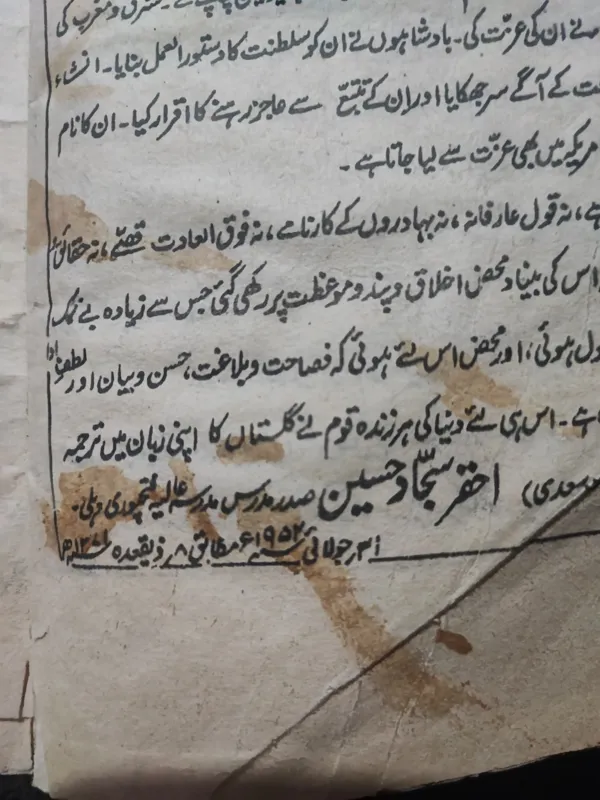 مشرق و مغرب کی
نے ان کی عزّت کی۔ بادشاہوں نے ان کو سلطنت کا دستور العمل بنایا۔ انشاء
کے آگے سر جھکایا اور ان کے تتبّع سے عاجز رہنے کا اقرار کیا۔ ان کا نام
میں بھی عزّت سے لیا جاتا ہے۔
ہے، نہ قول عارفانہ، نہ بہادروں کے کارنامے، نہ فوق العادت قصّے، نہ حقائق
اس کی بنیاد محض اخلاق و پند و موعظت پر رکھی گئی جس سے زیادہ بے نمک
ہوئی، اور محض اس لئے ہوئی کہ فصاحت و بلاغت، حسن و بیان اور لطف ادا
ہے۔ اس ہی لئے دنیا کی ہر زندہ قوم نے گلستاں کا اپنی زبان میں ترجمہ
سعدی) احقر سجّاد حسین صدر مدرس مدرسہ عالیہ فتحپوری دہلی۔
۳۱ جولائی ۱۹۵۲ء مطابق ۸ ذیقعدہ ۱۳۷۱ھ